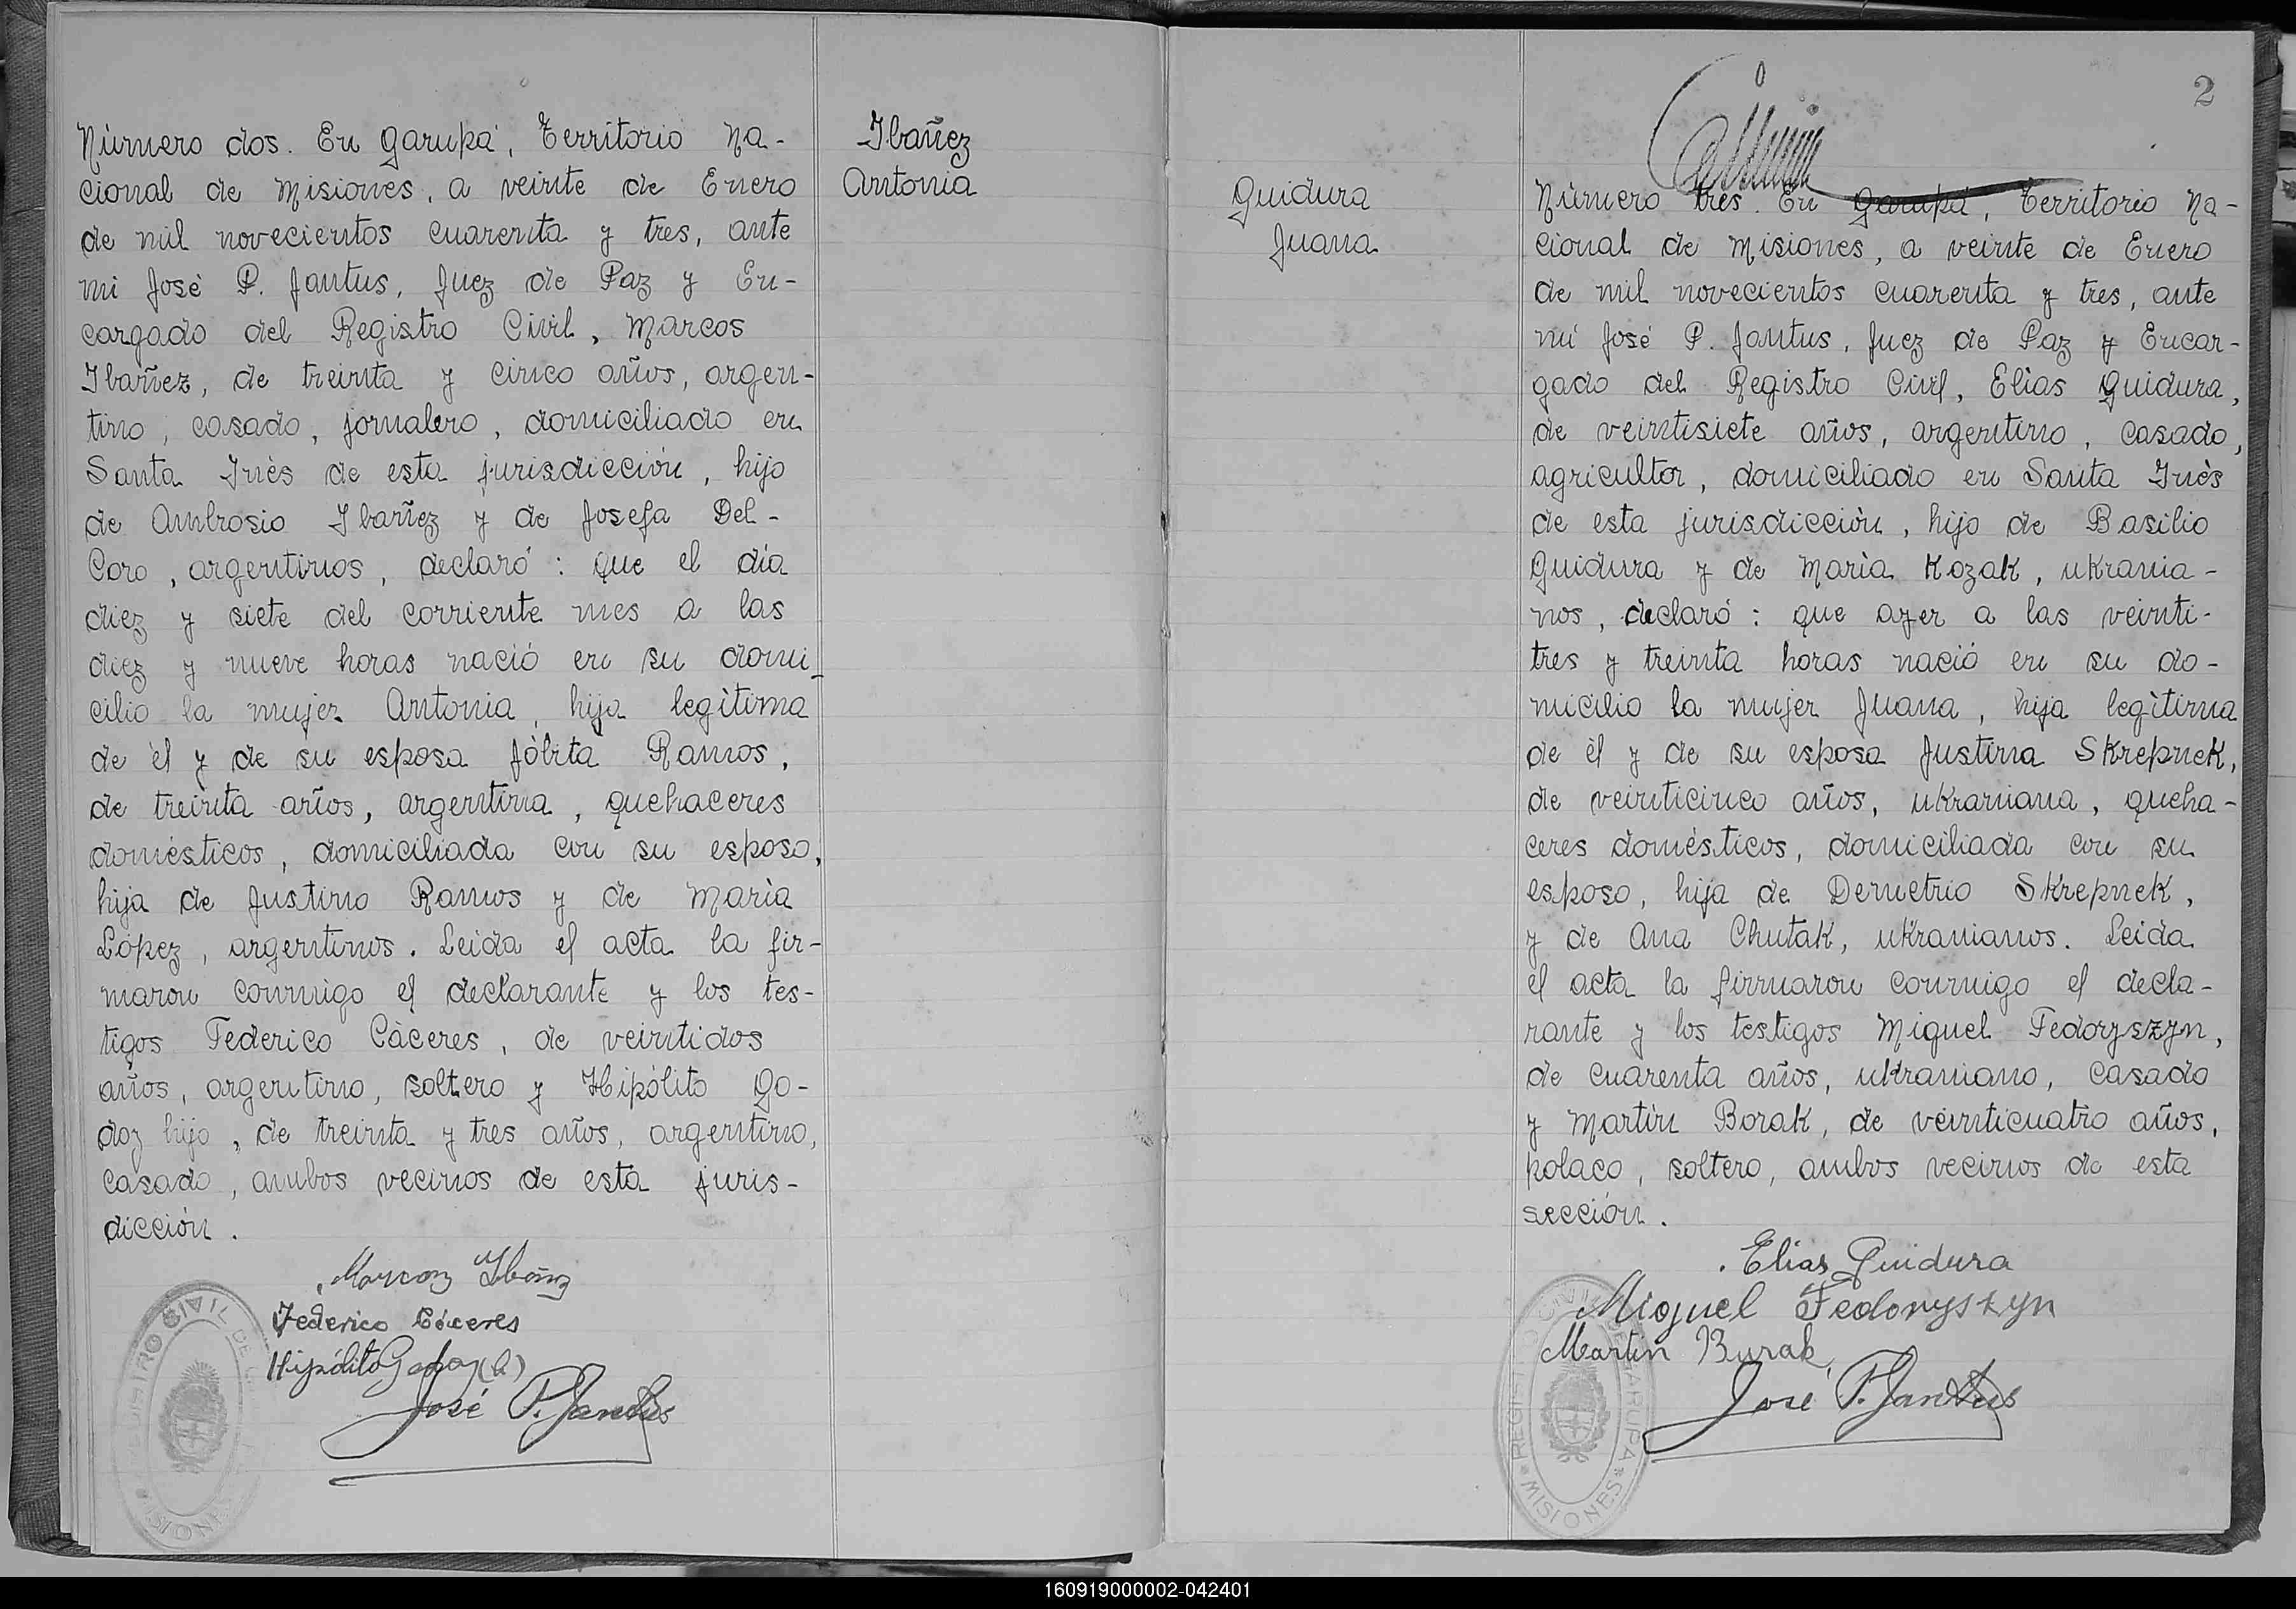 Número dos. En Garupá, Territorio Na-
cional de Misiones, a veinte de Enero
de mil novecientos cuarenta y tres, ante
mi José P. Jantus, Juez de Paz y En-
cargado del Registro Civil, Marcos
Ibañez, de treinta y cinco años, argen-
tino, casado, jornalero, domiciliado en
Santa Inès de esta jurisdicción, hijo
de Ambrosio Ibañez y de Josefa Del-
Coro, argentinos, declaró: que el día
diez y siete del corriente mes a las
diez y nueve horas nació en su domi-
cilio la mujer Antonia, hija legìtima
de èl y de su esposa Jòbita Ramos,
de treinta años, argentina, quehaceres
domésticos, domiciliada con su esposo,
hija de Justino Ramos y de Marìa
López, argentinos. Leida el acta la fir-
maron conmigo el declarante y los tes-
tigos Federico Càceres, de veintidos
años, argentino, soltero y Hipólito Go-
doy hijo, de treinta y tres años, argentino,
casado, ambos vecinos de esta juris-
dicción.
Marcos Ibañez
Federico Cáceres
Hipólito Godoy (h)
José P. Jantus
REGISTRO CIVIL DE
MISIONES
Ibañez
Antonia
2
Guidura
Juana
Nùmero tres. En Garupá, Territorio Na-
cional de Misiones, a veinte de Enero
de mil novecientos cuarenta y tres, ante
mi José P. Jantus, Juez de Paz y Encar-
gado del Registro Civil, Elìas Guidura,
de veintisiete años, argentino, casado,
agricultor, domiciliado en Santa Inès
de esta jurisdicciòn, hijo de Basilio
Guidura y de Marìa Kozak, ukrania-
nos, declaró: que ayer a las veinti-
tres y treinta horas nació en su do-
micilio la mujer Juana, hija legìtima
de èl y de su esposa Justina Skrepnek,
de veinticinco años, ukraniana, queha-
ceres domésticos, domiciliada con su
esposo, hija de Demetrio Skrepnek,
y de Ana Chutak, ukranianos. Leida
el acta la firmaron conmigo el decla-
rante y los testigos Miguel Fedoryszyn,
de cuarenta años, ukraniano, casado
y Martìn Borak, de veinticuatro años,
polaco, soltero, ambos vecinos de esta
sección.
Elias Guidura
Miguel Fedoryszyn
Martin Burak
José P. Jantus
REGISTRO CIVIL DE GARUPA
* MISIONES *
160919000002-042401